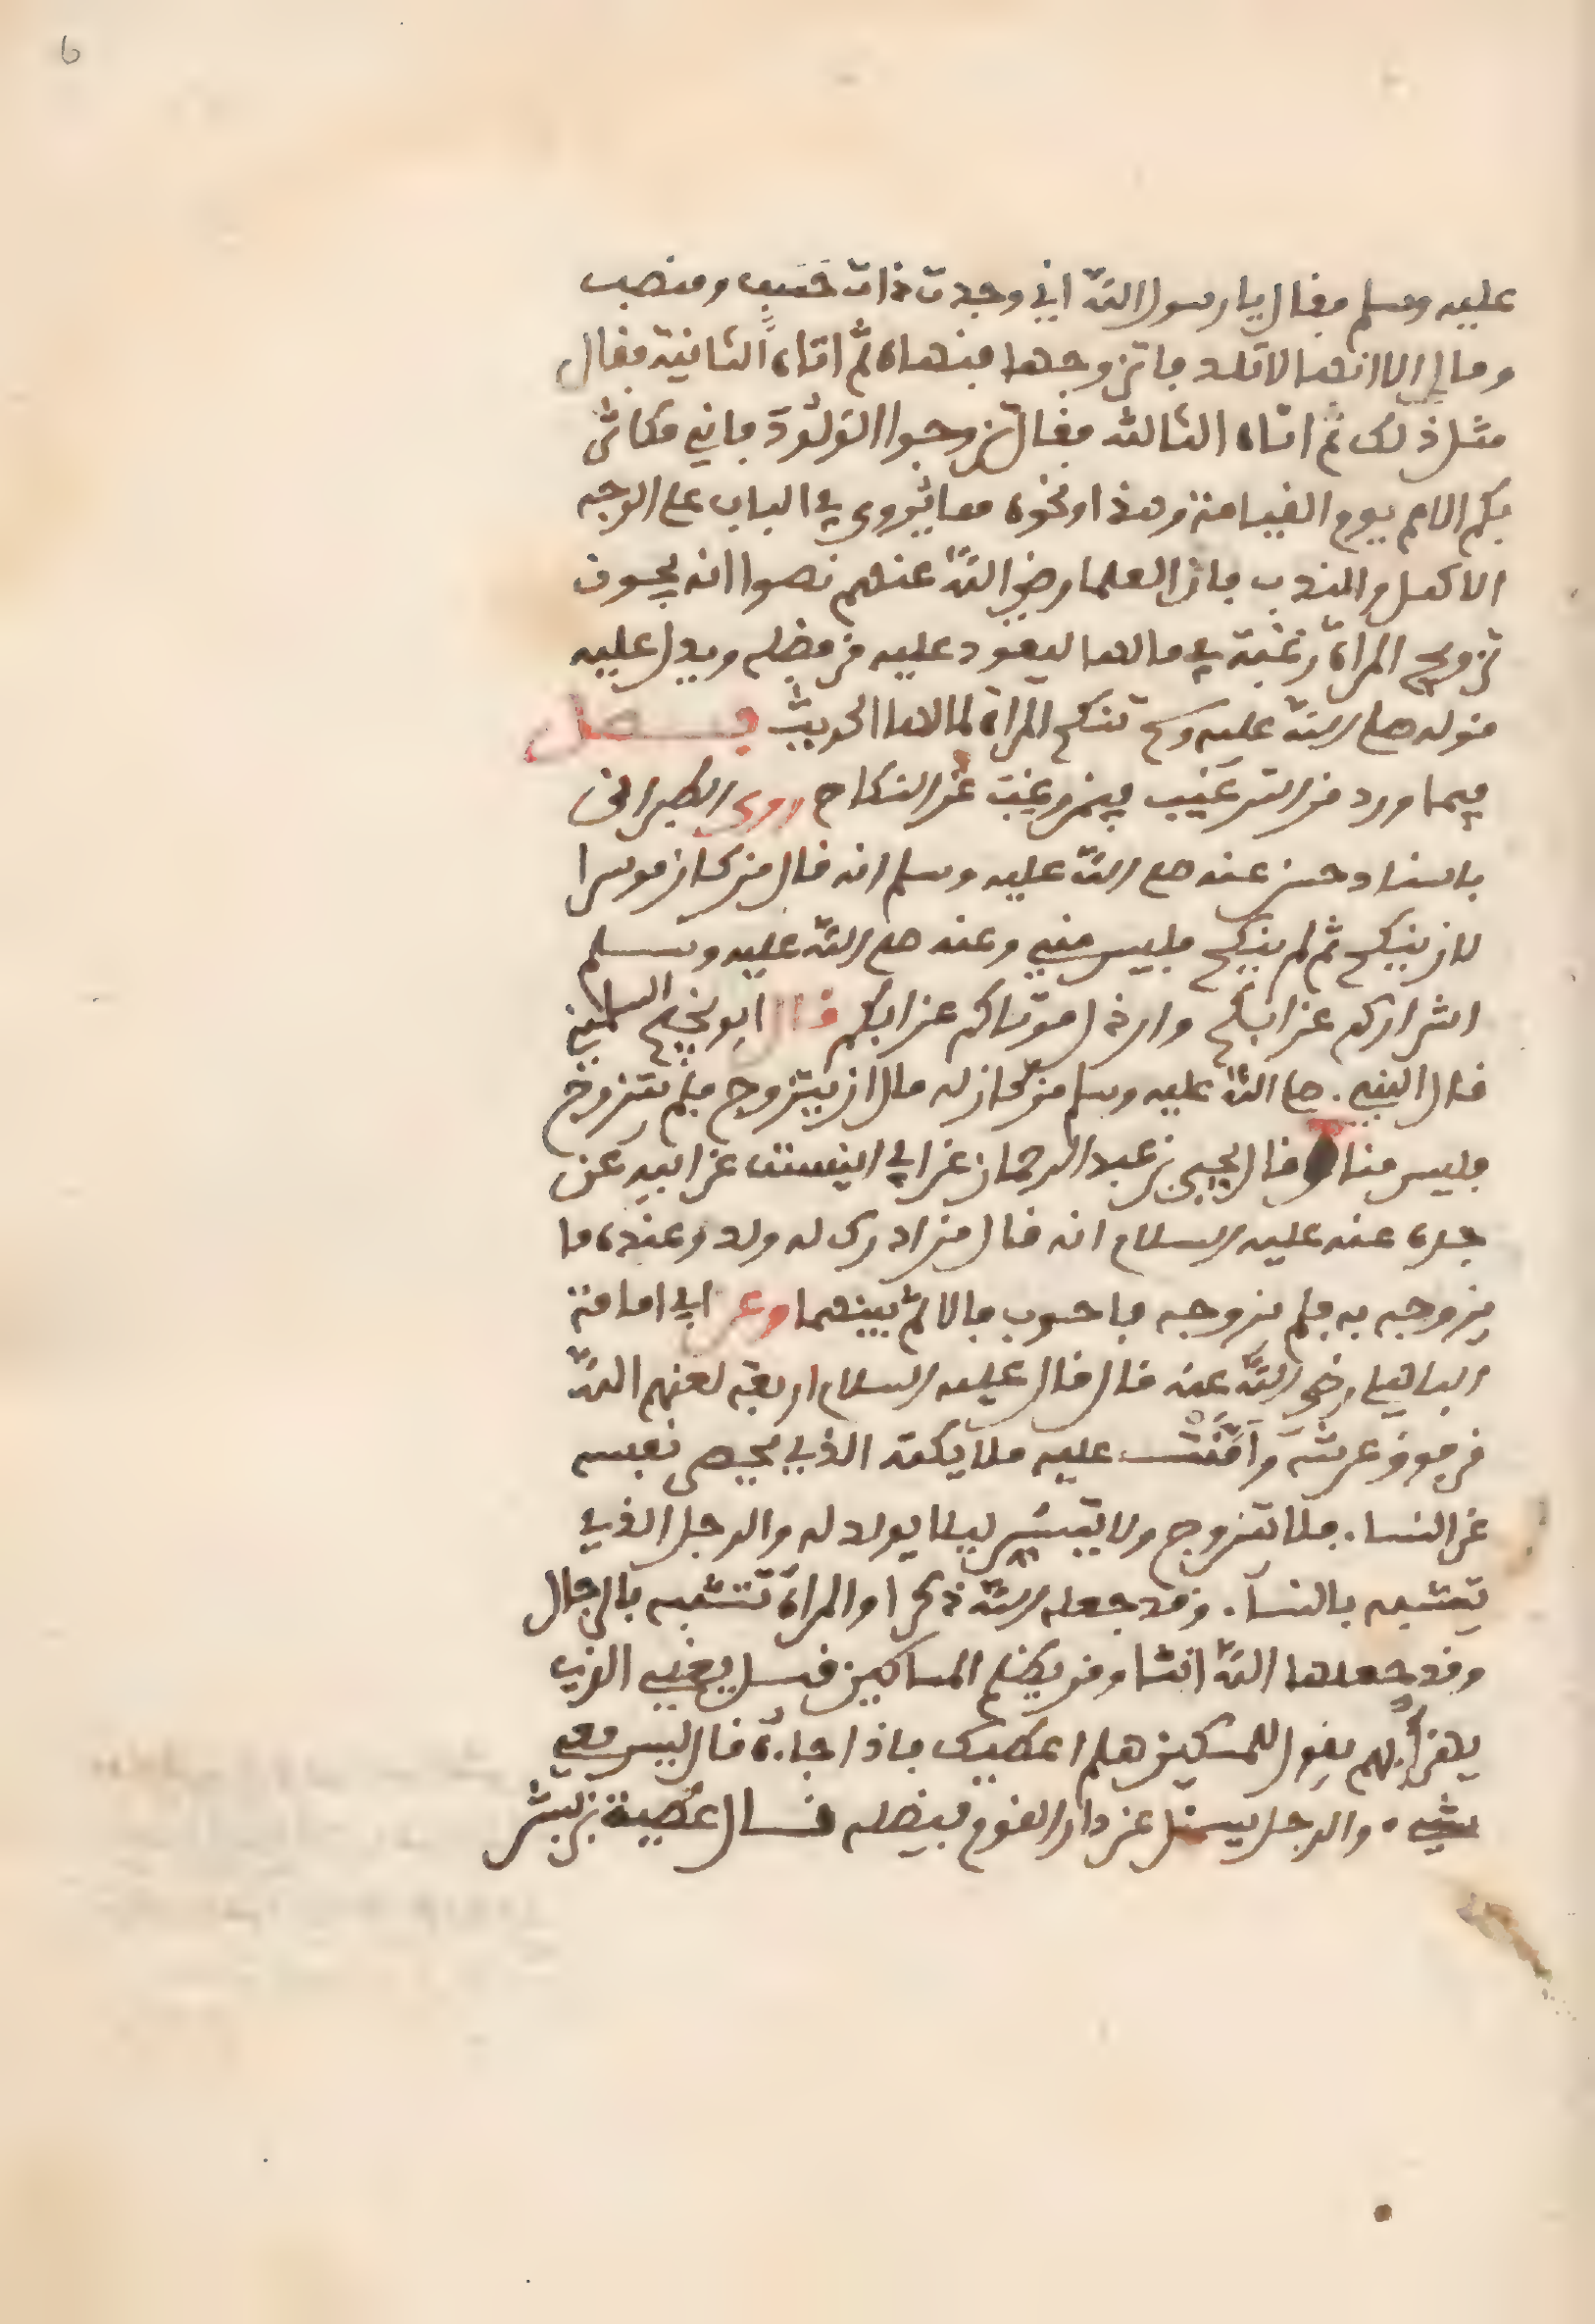 6
عليه وسلم فقال يا رسول الله اني وجدت ذات حسب ومنصب
ومال الا انها لا تلد فاتزوجها فنهاه ثم اتاه الثانية فقال
مثل ذلك ثم اتاه الثالثه فقال تزوجوا الولود فاني مكاثر
بكم الامم يوم القيامة وهذا ونحوه مما يروى في الباب على الوجه
الاكمل والمندب فان العلما رضي الله عنهم نصوا انه يجوز
تزويج المراة رغبة في مالها ليعود عليه من فضله ويدل عليه
قوله صلى الله عليه وسلم تنكح المراة لمالها الحديث فصل
فيما ورد من الترغيب فيمن رغب عن النكاح روى الطبراني
باسناد حسن عنه صلى الله عليه وسلم انه قال من كان موسرا
لان ينكح ثم لم ينكح فليس مني وعنه صلى الله عليه وسلم
اشراركم عزابكم وارذل موتاكم عزابكم قال ابو نجيح السلمي
قال النبي صلى الله عليه وسلم من كان له مال ان يتزوج فلم يتزوج
فليس منا وقال يحيى بن عبد الرحمان عن ابي عن ابيه عن
جده عنه عليه السلام انه قال من ادرك له ولد وعنده ما
يزوجه به فلم يزوجه فاحدث فالاثم بينهما وعن ابي امامة
الباهلي رضي الله عنه قال قال عليه السلام اربعة لعنهم الله
من فوق عرشه وامنت عليه ملايكته الذي يحصي نفسه
عن النسا فلا يتزوج ولا يتسرر ليلا يولد له والرجل الذي
يتشبه بالنسا وقد جعله الله ذكرا والمراة تتشبه بالرجال
وقد جعلها الله انثا ومن يضلل المساكين فسل يعني الذي
يهزا بهم يقول للمسكين هلم اعطيك فاذا جاه قال ليس معي
شيء والرجل يسئل عن دار القوم فيضله قال عطية بن بشر